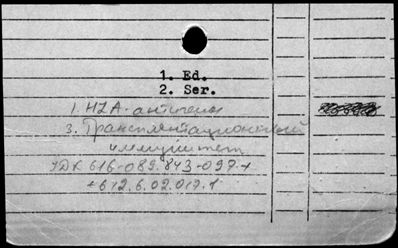 1. Ed.
2. Ser.
1. HLA-антигены
3. Трансплантационный
иммунитет
УДК 616-089.843-097+
+612.6.02.017.1